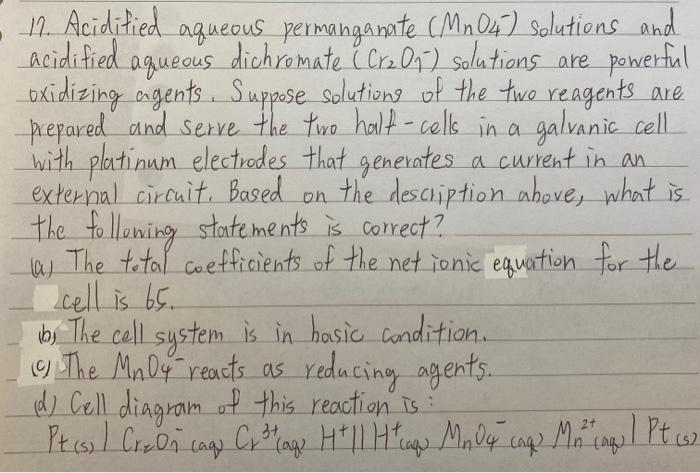 17. Acidified aqueous permanganate (MnO4⁻) solutions and
acidified aqueous dichromate (Cr2O7⁻) solutions are powerful
oxidizing agents. Suppose solutions of the two reagents are
prepared and serve the two half-cells in a galvanic cell
with platinum electrodes that generates a current in an
external circuit. Based on the description above, what is
the following statements is correct?
(a) The total coefficients of the net ionic equation for the
cell is 65.
(b) The cell system is in basic condition.
(c) The MnO4⁻ reacts as reducing agents.
(d) Cell diagram of this reaction is :
Pt(s) | Cr2O7⁻(aq) Cr³⁺(aq) H⁺ || H⁺(aq) MnO4⁻(aq) Mn²⁺(aq) | Pt(s)